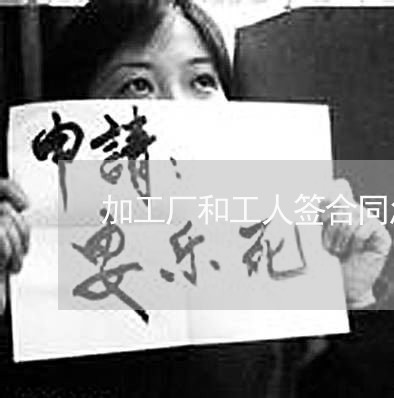 申請：
加工厂和工人签合同
乐死